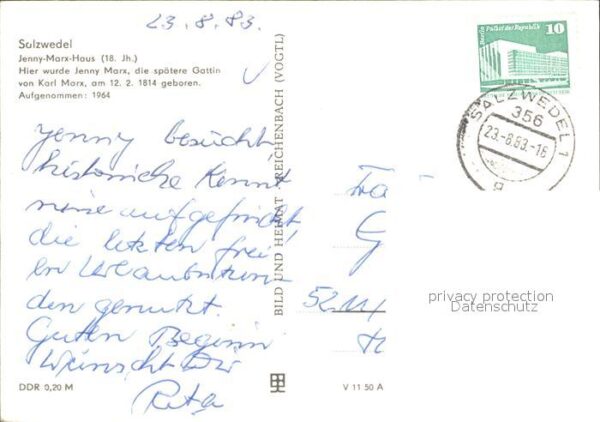 23.8.83.
Salzwedel
Jenny-Marx-Haus (18. Jh.)
Hier wurde Jenny Marx, die spätere Gattin
von Karl Marx, am 12. 2. 1814 geboren.
Aufgenommen: 1964
Jenny besucht,
historische Kennt
nisse aufgefrischt,
die letzten frei
en Urlaubsstun-
den genutzt.
Guten Beginn
wünscht Dir
Rita
DDR 0,20 M
BILD UND HEIMAT REICHENBACH (VOGTL)
Berlin Palast der Republik
10
DDR
SALZWEDEL 1
356
23.-8.83.-16
g
Fra
G
52111
privacy protection
Datenschutz
V 11 50 A